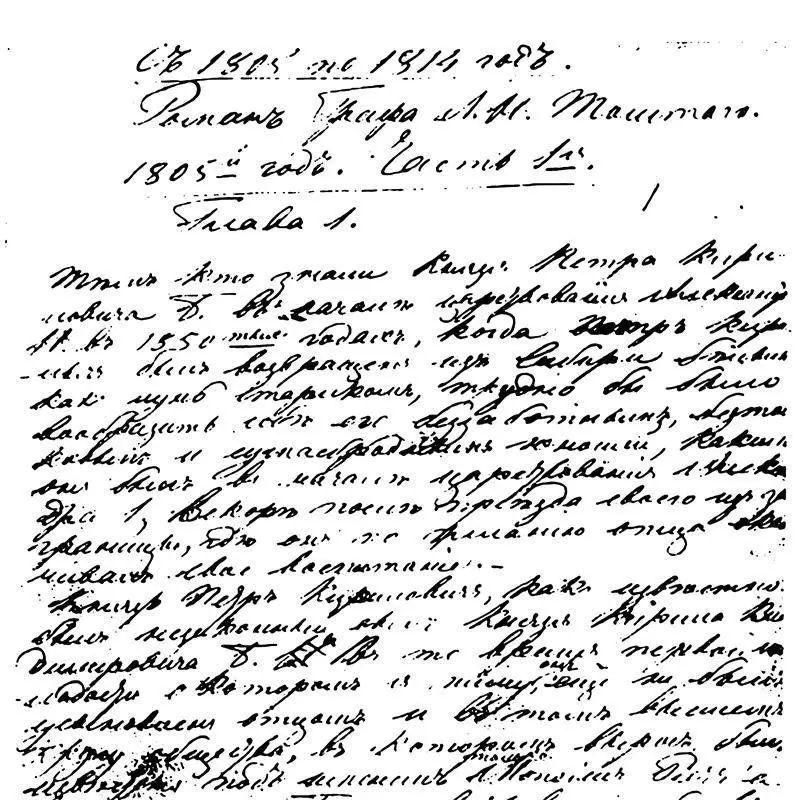 Съ 1805 по 1814 годъ.
Романъ Графа Л. Н. Толстого.
1805й годъ. Часть 1я.
Глава 1.
Тѣмъ кто знали Князя Петра Кири
ловича Б. въ началѣ царствованія Александра
II. въ 1850 тыхъ годахъ, когда Петръ Кири
лычъ былъ возвращенъ изъ Сибири бѣлымъ
какъ лунь старикомъ, трудно бы было
вообразить себѣ его беззаботнымъ, безтол
ковымъ и сумасброднымъ юношей, какимъ
онъ былъ въ началѣ царствованія Алекса
дра I, вскорѣ послѣ пріѣзда своего изъ за
границы, гдѣ онъ по желанію отца окан
чивалъ свое воспитаніе. —
Князь Петръ Кириловичъ, какъ извѣстно
былъ незаконный сынъ Князя Кирила Вла
димировича Б. Въ то время
еще не былъ
усыновленъ отцомъ и въ томъ высшемъ
кругу общества, въ которомъ
извѣстенъ подъ именемъ